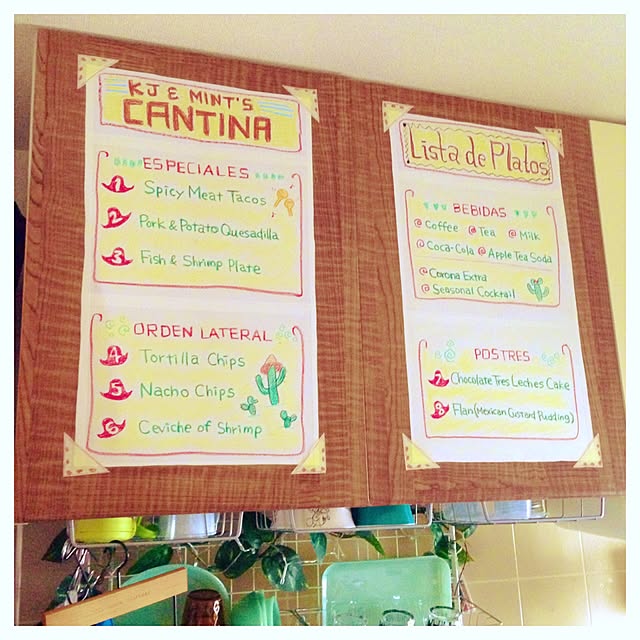 KJ & MINT'S
CANTINA
ESPECIALES
1 Spicy Meat Tacos
2 Pork & Potato Quesadilla
3 Fish & Shrimp Plate
ORDEN LATERAL
4 Tortilla Chips
5 Nacho Chips
6 Ceviche of Shrimp
Lista de Platos
BEBIDAS
@ Coffee @ Tea @ Milk
@ Coca-Cola @ Apple Tea Soda
@ Corona Extra
@ Seasonal Cocktail
POSTRES
7 Chocolate Tres Leches Cake
8 Flan (Mexican Custard Pudding)